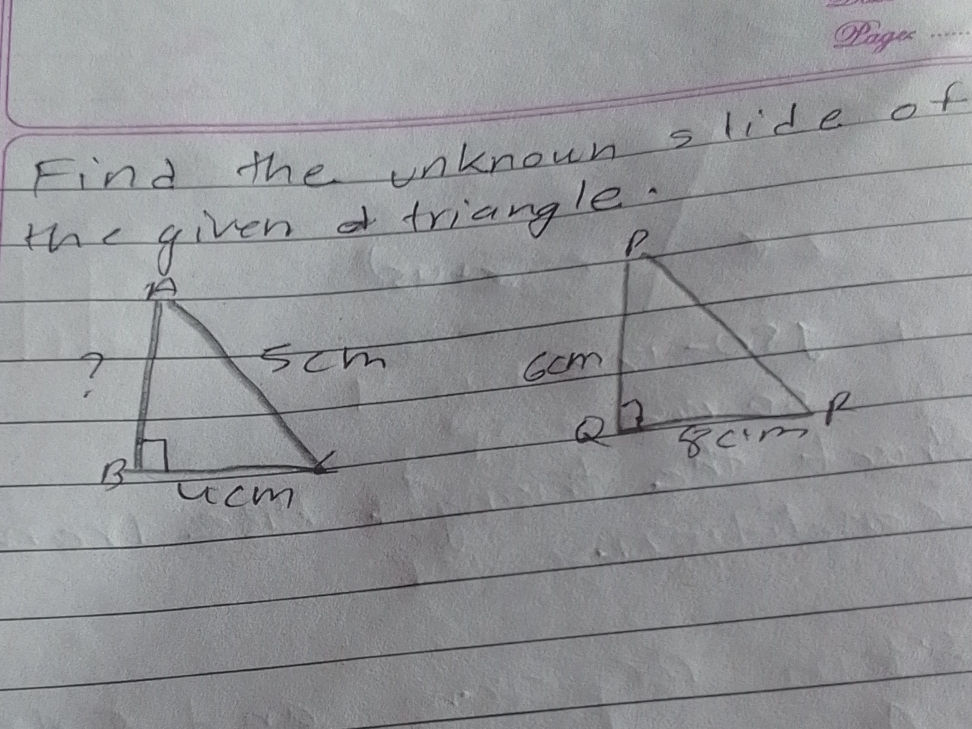 Page ......
Find the unknoun slide of
the given triangle.
A
P
?
5cm
6cm
B
4cm
Q
8cm
R